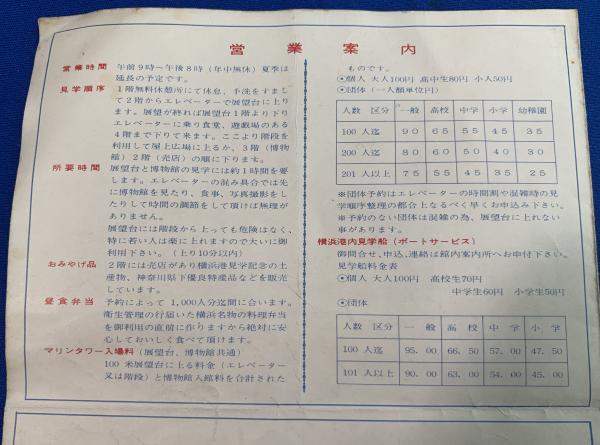 営業案内
営業時間 午前9時〜午後8時(年中無休)夏季は
延長の予定です。
見学順序 1階無料休憩所にて休息、手洗をすまし
て2階からエレベーターで展望台に上り
ます。展望が終れば展望台1階より下り
エレベーターに乗り食堂、遊戯場のある
4階まで下りて来ます。ここより階段を
利用して屋上広場に上るか、3階(博物
館)2階(売店)の順に下ります。
所要時間 展望台と博物館の見学には約1時間を要
します。エレベーターの混み具合では先
に博物館を見たり、食事、写真撮影をし
たりして時間の調節をして頂けば無理が
ありません。
展望台には階段から上っても危険はなく、
特に若い人は楽に上れますので大いに御
利用下さい。(上り10分以内)
おみやげ品 2階には売店があり横浜港見学記念の土
産物、神奈川県下優良特産品などを販売
しています。
昼食弁当 予約によって1,000人分迄間に合います。
衛生管理の行届いた横浜名物の料理弁当
を御利用の直前に作りますから絶対に安
心しておいしく食べて頂けます。
マリンタワー入場料(展望台、博物館共通)
100米展望台に上る料金(エレベーター
又は階段)と博物館入館料を合計された
ものです。
◎個人 大人100円 高中生80円 小人50円
◎団体(一人額単位円)
人数 区分 一般 高校 中学 小学 幼稚園
100人迄 90 65 55 45 35
200人迄 80 60 50 40 30
201人以上 75 55 45 35 25
※団体予約はエレベーターの時間割や混雑時の見
学順序整理の都合上なるべく早くお申込み下さい。
※予約のない団体は混雑の為、展望台に上れない
事があります。
横浜港内見学船(ポートサービス)
御問合せ、申込、連絡は館内案内所へお申付下さい。
見学船料金表
◎個人 大人100円 高校生70円
中学生60円 小学生50円
◎団体
人数 区分 一般 高校 中学 小学
100人迄 95.00 66.50 57.00 47.50
101人以上 90.00 63.00 54.00 45.00